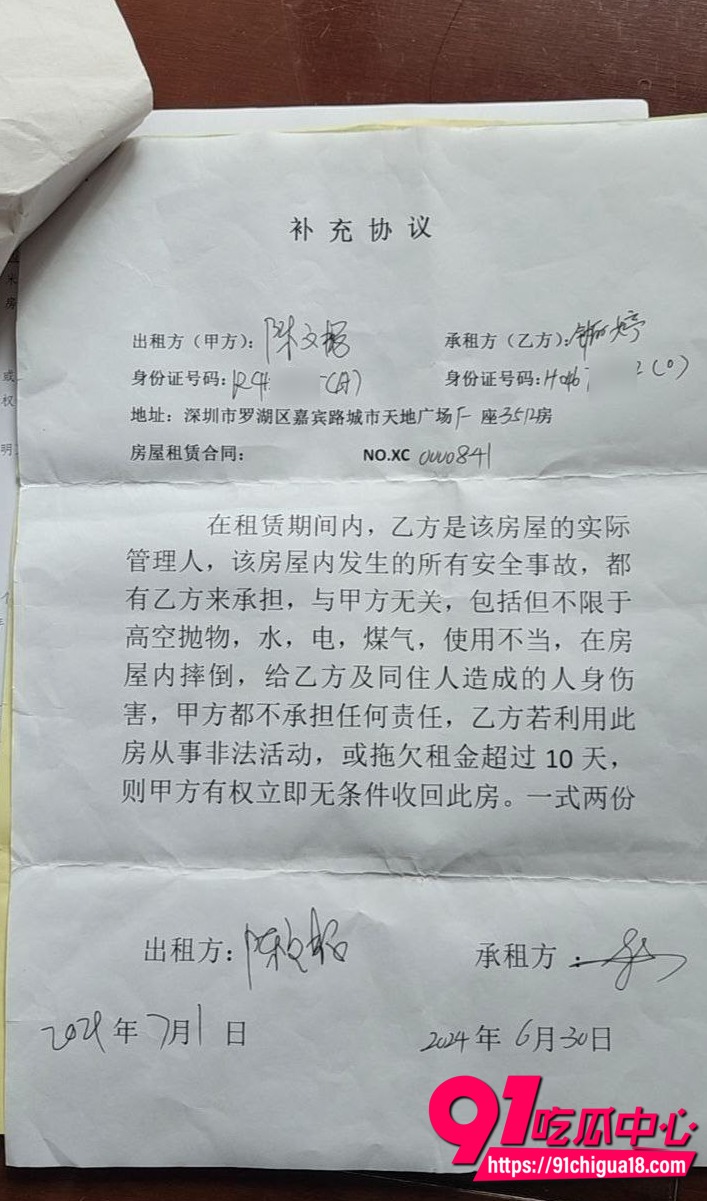 补充协议
出租方（甲方）：陈文招 承租方（乙方）：婷
身份证号码：R4 (A) 身份证号码：H046 2(0)
地址：深圳市罗湖区嘉宾路城市天地广场 座3512房
房屋租赁合同： NO.XC 0000841
在租赁期间内，乙方是该房屋的实际
管理人，该房屋内发生的所有安全事故，都
有乙方来承担，与甲方无关，包括但不限于
高空抛物，水，电，煤气，使用不当，在房
屋内摔倒，给乙方及同住人造成的人身伤
害，甲方都不承担任何责任，乙方若利用此
房从事非法活动，或拖欠租金超过 10 天，
则甲方有权立即无条件收回此房。一式两份
出租方：陈文招 承租方：
2024年7月1日 2024年6月30日
91吃瓜中心
https://91chigua18.com
米
房
或
权
明